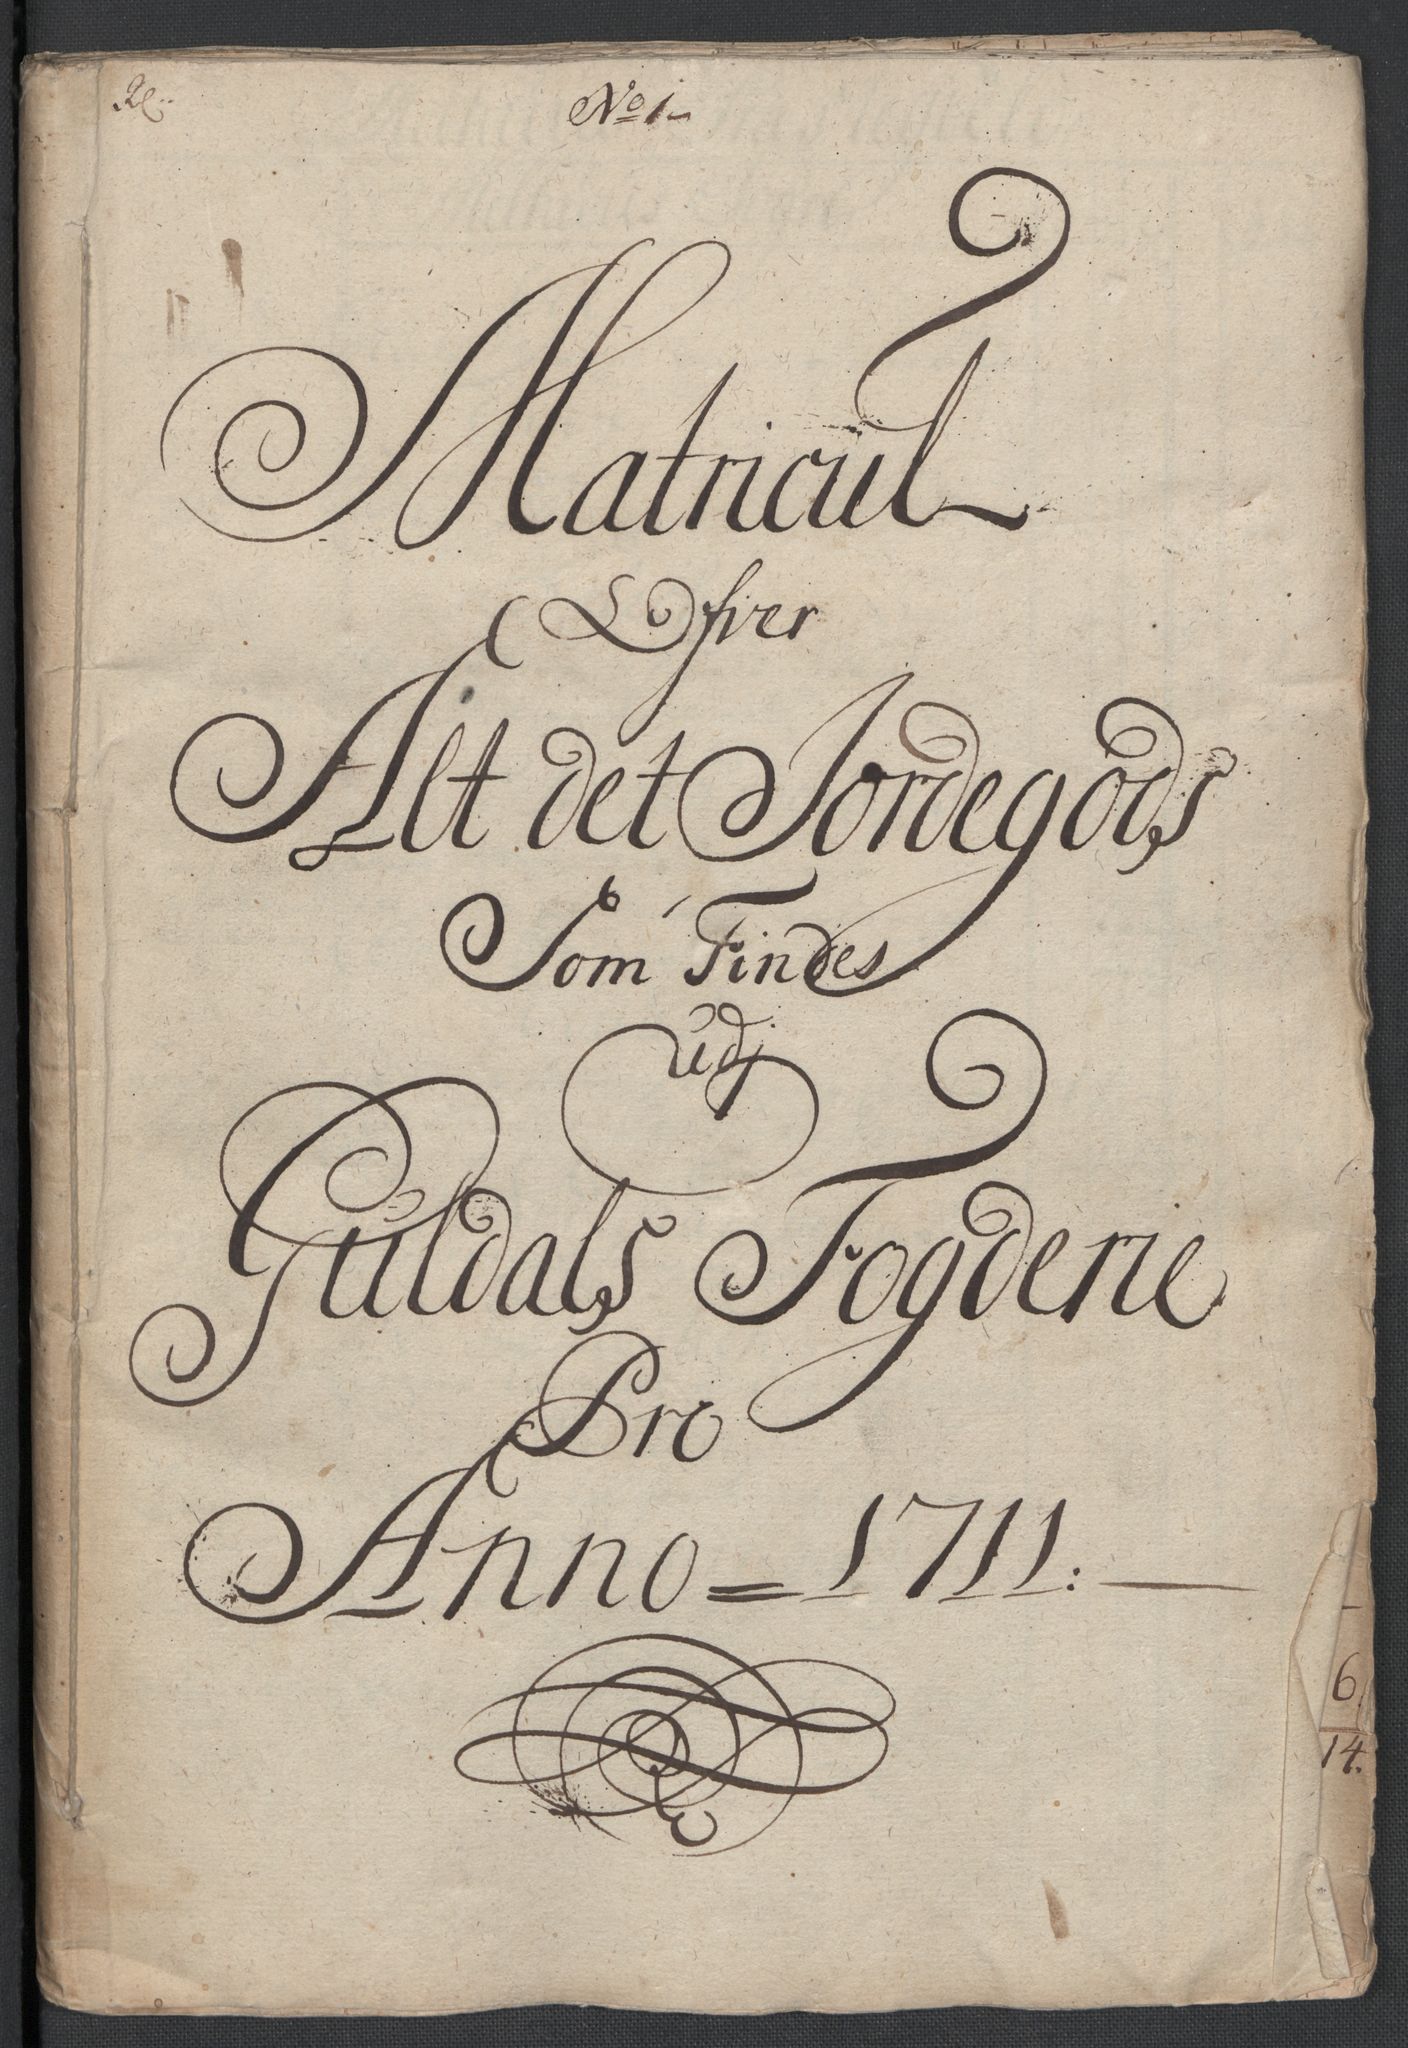 No 1
Matricul
Ofver
Alt det Jordegods
Som Findes
udj
Guldals Fogderie
Pro
Anno = 1711:
6
14.